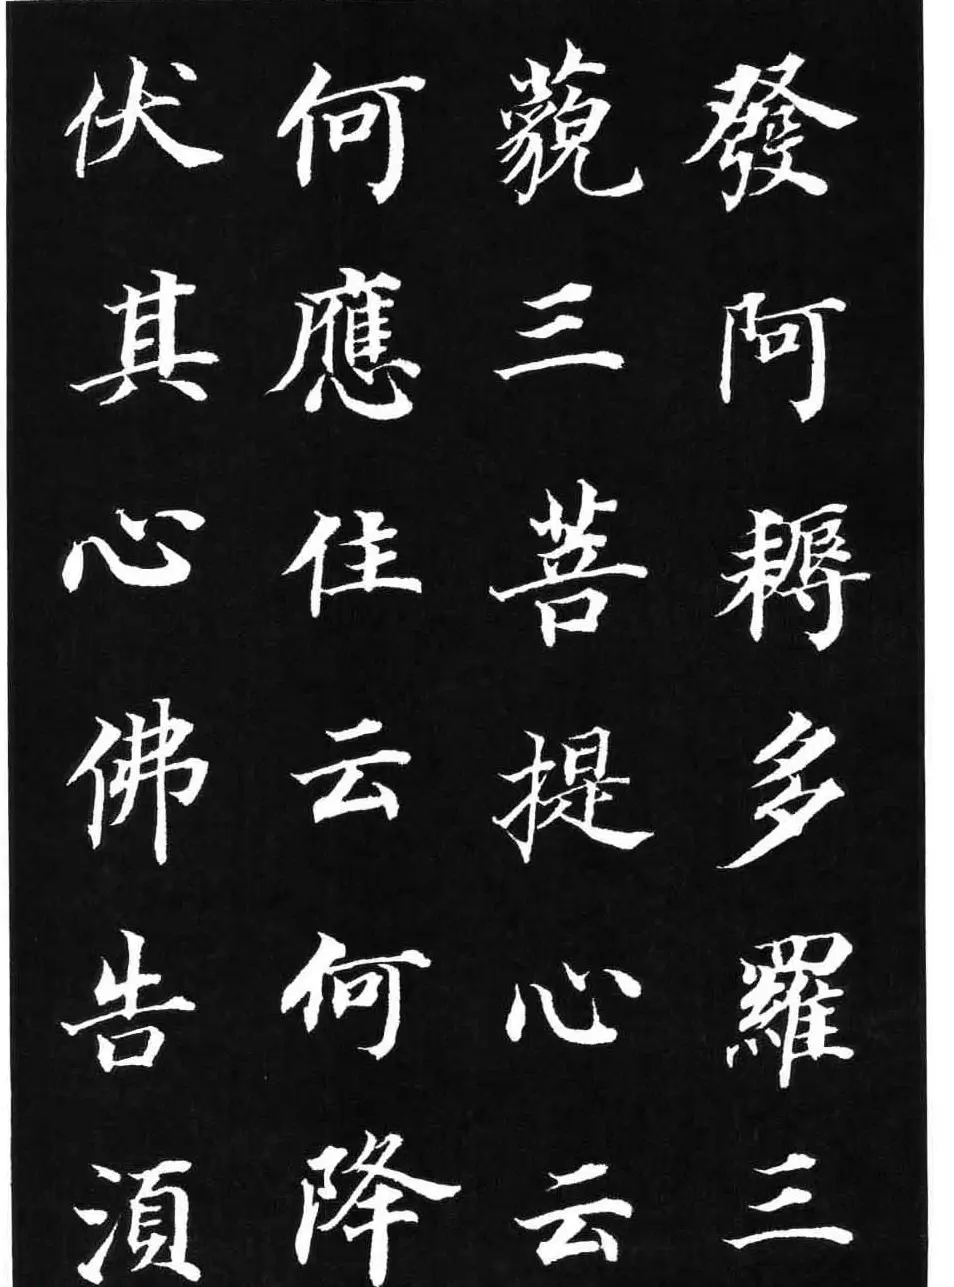 發阿耨多羅三
藐三菩提心云
何應住云何降
伏其心佛告湏